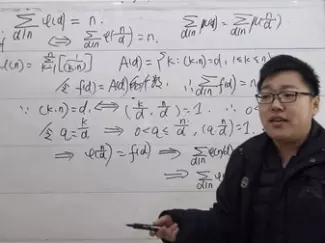 ∑_{d|n} φ(d) = n.
⇔ ∑_{d|n} φ(n/d) = n. ∑_{d|n} μ(d) = ∑_{d|n} μ(n/d)
φ(n) = ∑_{k=1}^{n} [1/(k,n)] A(d) = {k: (k,n)=d, 1≤k≤n}
令 f(d) = A(d) ∴ ∑_{d|n} f(d) = n
∵ (k,n)=d, ⇔ (k/d, n/d) = 1. ∴ 0<
令 q = k/d ⇒ 0<q≤n/d, (q, n/d)=1.
⇒ φ(n/d) = f(d) ⇒ ∑_{d|n} φ(n/d)
⇒ ∑_{d|n} φ